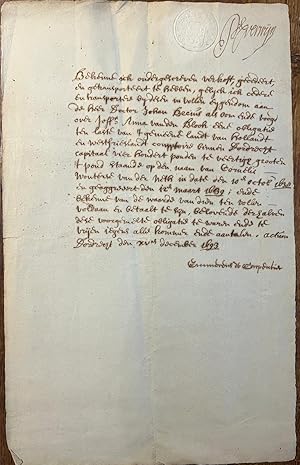 Bekenne ick ondergeschreven verkoft, gecedeert,
en getransporteert te hebben, gelyck ick cedere
en transportere by desen in vollen eygendom aan
de Heer Doctor Johan als oom ende voogt
over Joffr. Anna vanden Block eene obligatie
ten laste van t gemeene landt van Hollandt
en Westfrieslandt comptoire binnen Dordrecht
capitael vier hondert ponden te veertigh grooten
t pond staende op den naem van Cornelis
Woutersz van der in date den 10e octobr
en geaggreert den maart ende
bekenne van de waarde van dien ten vollen
voldaen en betaelt te syn, belovende deselve
dese voorgemelte obligatie te waren ende te
vrijen jegens alle kommer ende aantalen. actum
Dordregt den december 1693
de Carpentier